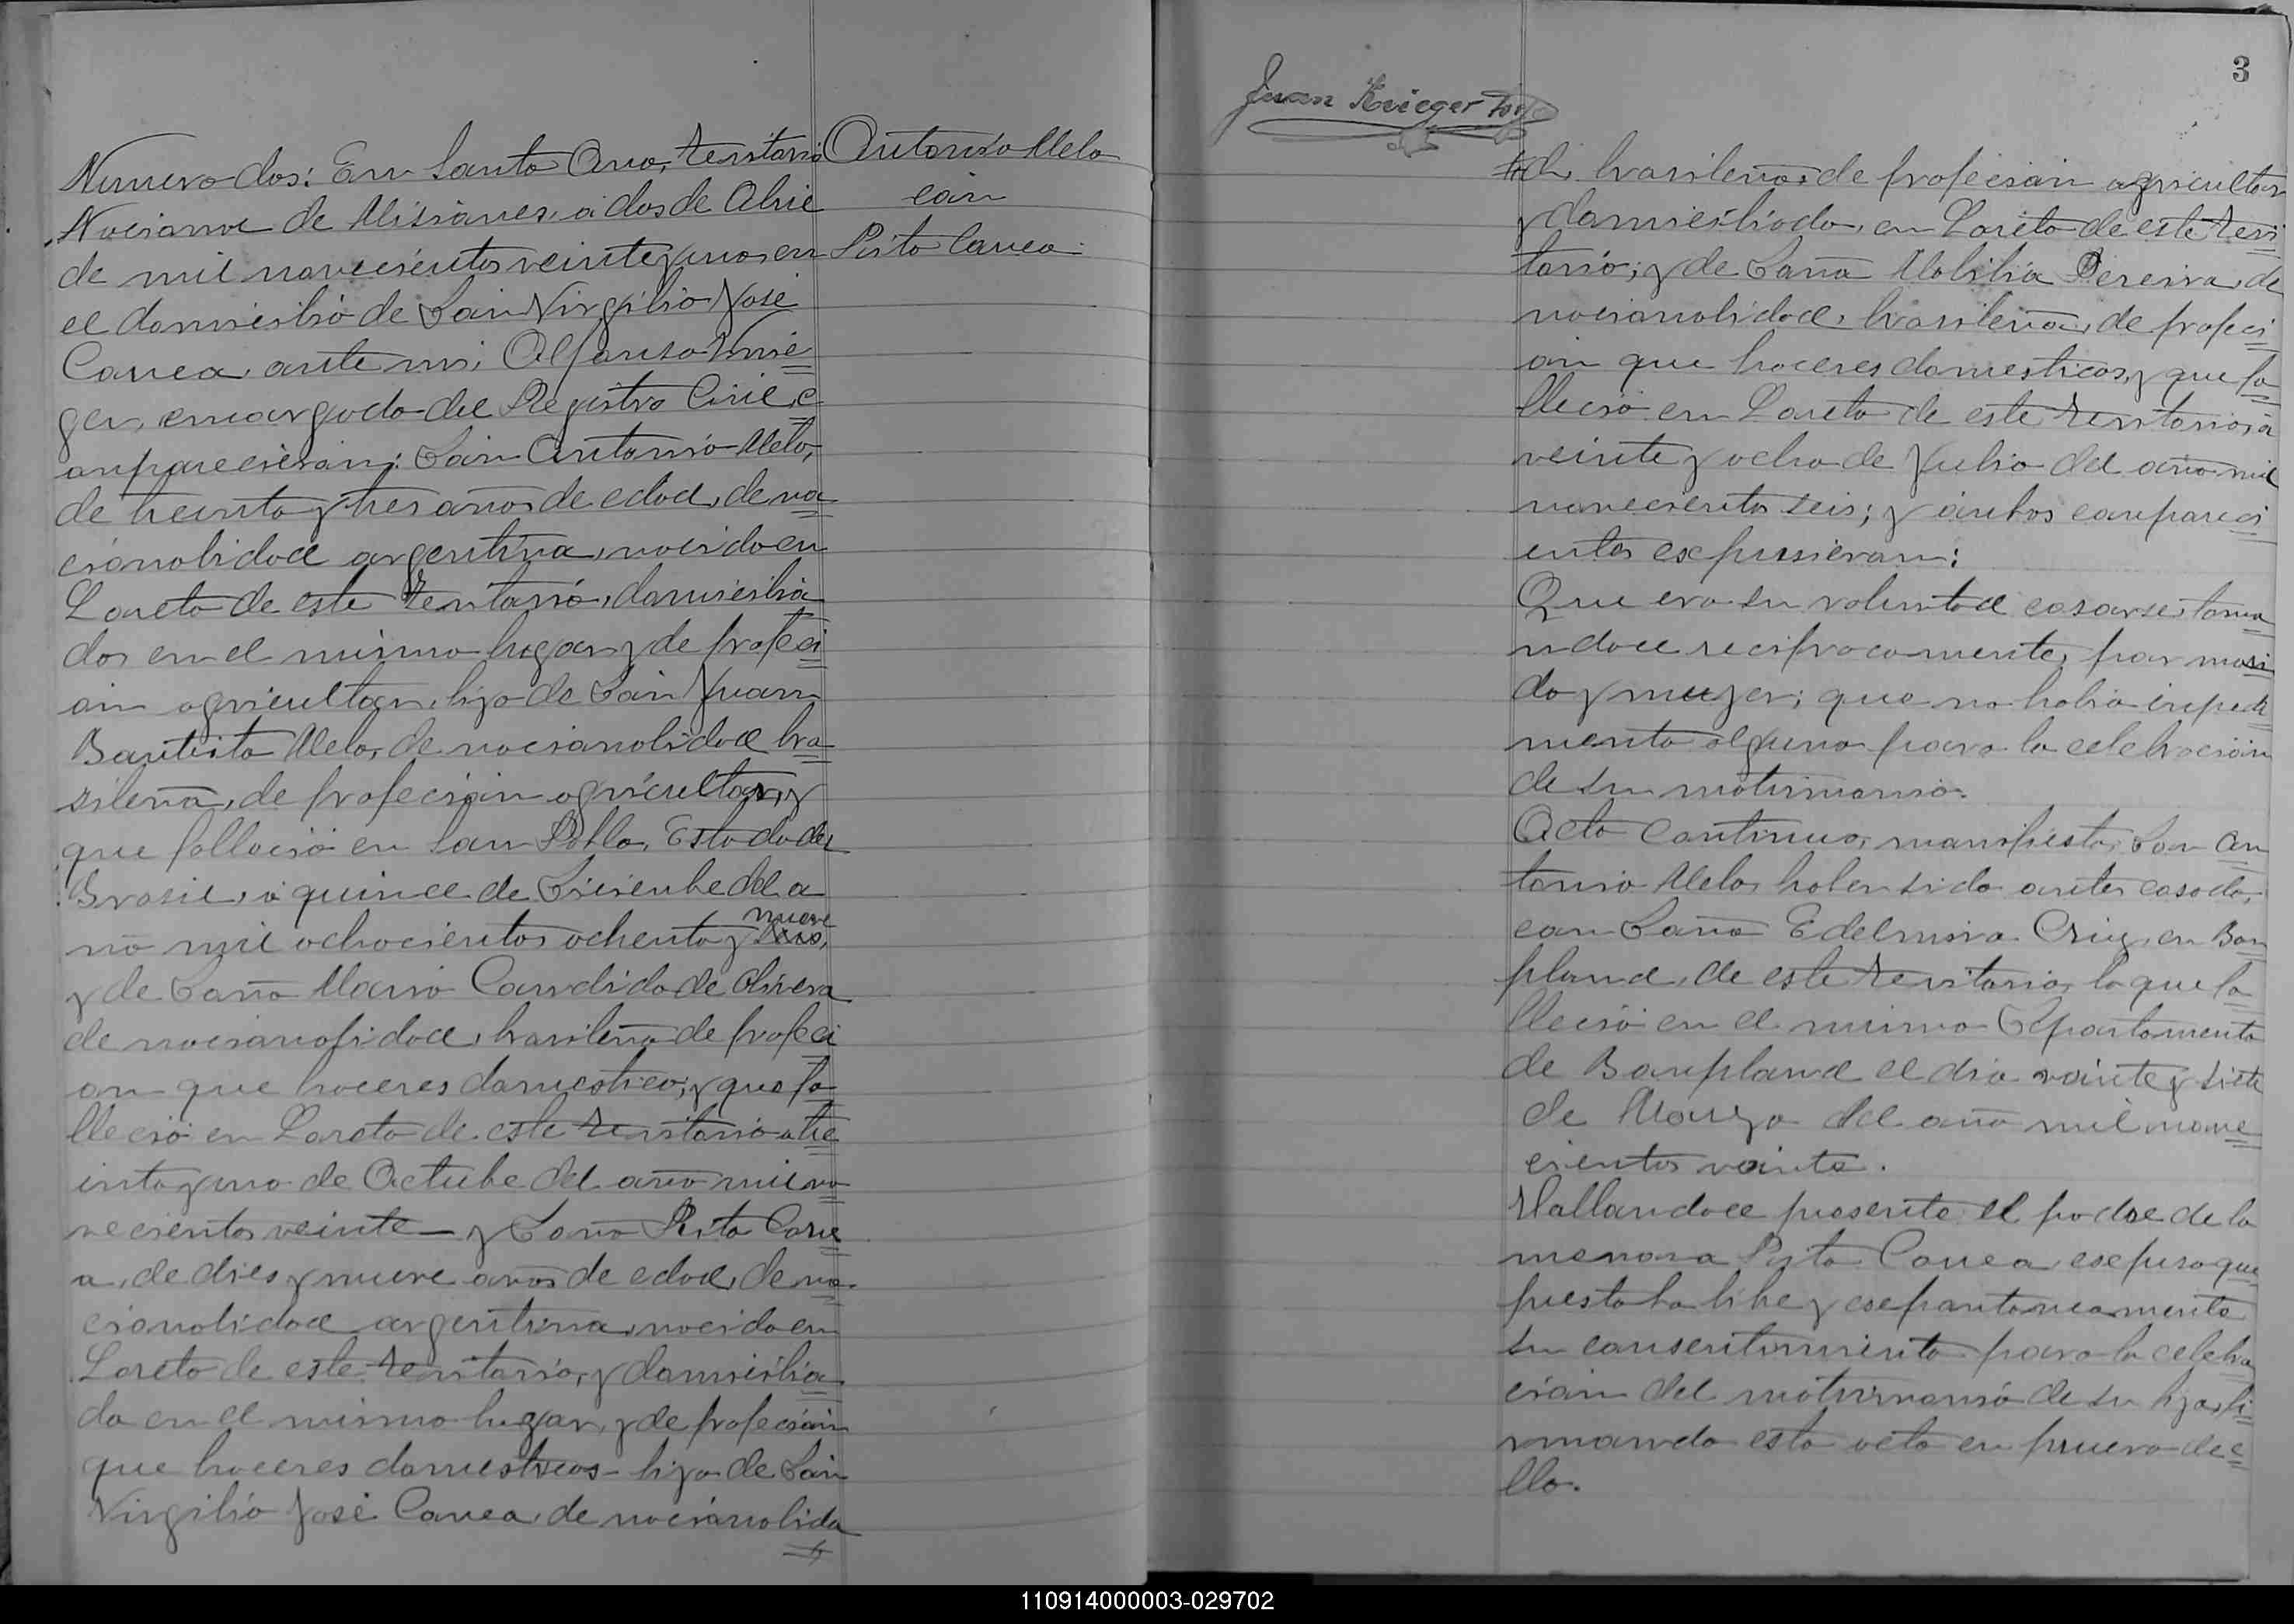 Numero dos: En Santa Ana, territorio
Nacional de Misiones, á dos de Abril
de mil novecientos veinte y uno, en
el domicilio de Don Virgilio José
Correa, ante mi, Alfonso Krie
ger, encargado del Registro Civil, c
omparecieron: Don Antonio Melo,
de treinta y tres años de edad, de na
cionalidad argentina, nacido en
Loreto de este territorio, domicilia
do, en el mismo lugar y de profeci
ón agricultor, hijo de Don Juan
Bautista Melo, de nacionalidad bra
silena, de profeción agricultor, y
que falleció en San Pablo, Estado del
Brasil, á quince de Diciembre del a
ño mil ochocientos ochenta y nueve,
y de Doña Maria Candida de Olivera
de nacionalidad, brasileña de profeci
on que haceres domestico; y que fa
lleció en Loreto de este territorio a tre
inta y uno de Octubre del año mil no
vecientos veinte — y Doña Rita Corre
a, de dies y nueve años de edad, de na
cionalidad argentina, nacida en
Loreto de este territorio, y domicilia
da en el mismo lugar, y de profeción
que haceres domesticos - hija de Don
Virgilio José Correa, de nacionalida
Antonio Melo
con
Rita Correa
3
Juan Krieger
d, brasileño, de profeción agricultor
y domiciliado, en Loreto de este terri
torio; y de Doña Mobilia Pereira, de
nacionalidad, brasileña, de profeci
ón que haceres domesticos, y que fa
lleció en Loreto de este territorio, á
veinte y ocho de Julio del año mil
novecientos seis; y ámbos compareci
entes expusieron:
Que era su voluntad casarse, toma
ndoce reciprocamente, por mari
do y mujer; que no habia impedi
mento alguno para la celebración
de su matrimonio.
Acto Continuo, manifiesta, Don An
tonio Melo, haber sido antes casado,
con Doña Edelmira Cruz, en Bon
pland, de este territorio, la que fa
lleció en el mismo Departamento
de Bonpland el dia veinte y siete
de Marzo del año mil nove
cientos veinte.
Hallandoce presente el padre de la
menora Rita Correa, expuso que
prestaba libre y expontaneamente
su consentimiento para la celebra
ción del matrimonio de su hija, fi
rmando esta acta en prueva de e
llo.
110914000003-029702